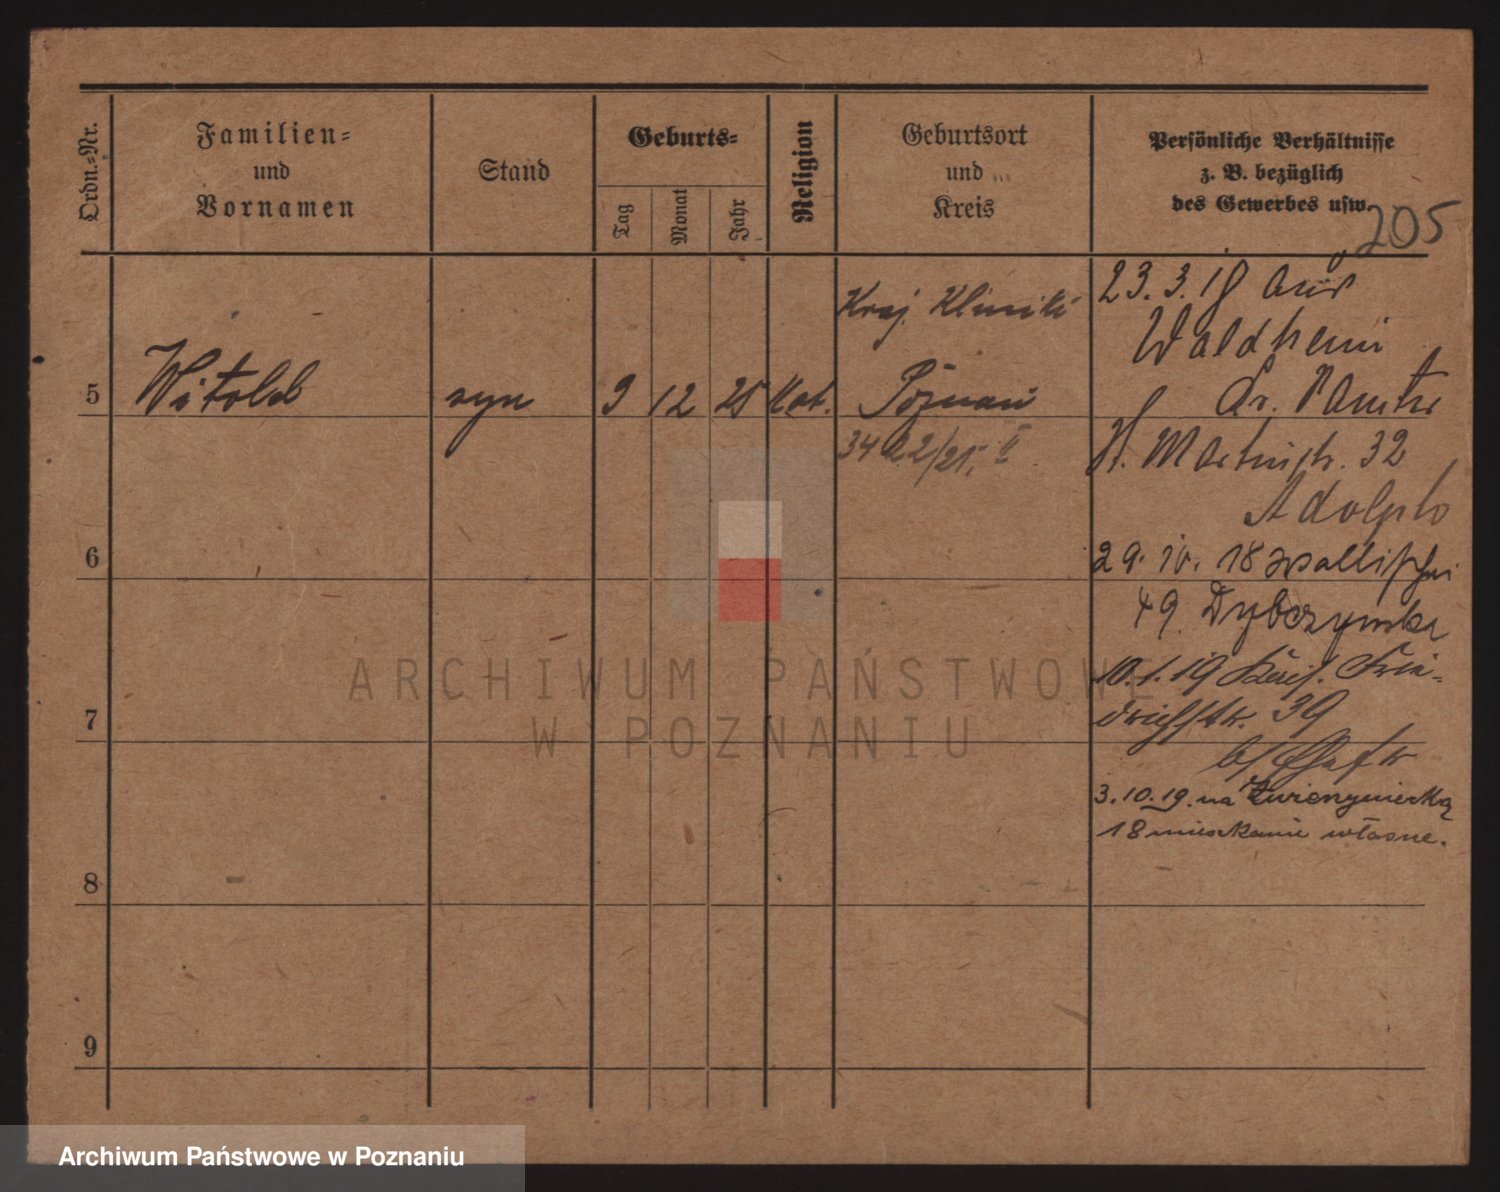 Ordn.=Nr.
Familien=
und
Vornamen
Stand
Geburts=
Tag
Monat
Jahr
Religion
Geburtsort
und
Kreis
Persönliche Verhältnisse
z. B. bezüglich
des Gewerbes usw.
205
5
Witold
syn
9
12
25
kat.
Kraj. Kliniki
Poznań
3422/25. II
23.3.18 aus
Waldheim
32
Adolph
6
29. 18 Wallischei
49. Dybczynska
7
10.1.19 Frie-
drichstr. 39
b/
3.10.19. na Zwierzyniecką
18 mieszkanie własne.
8
9
ARCHIWUM PAŃSTWOWE
W POZNANIU
Archiwum Państwowe w Poznaniu